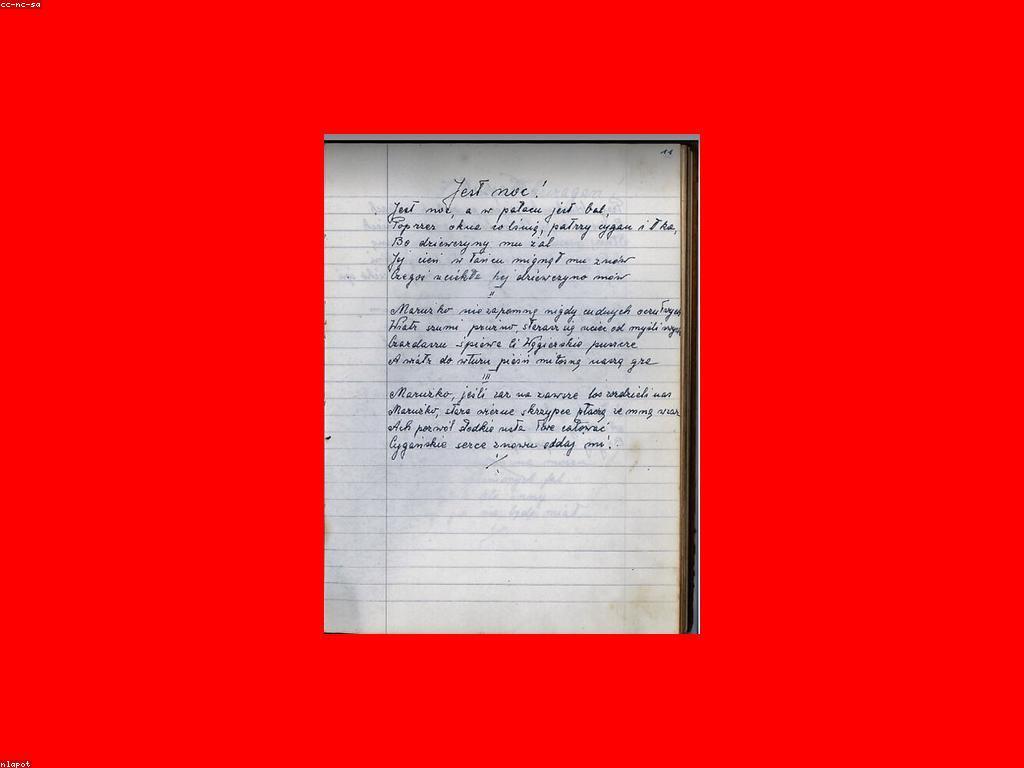 cc-nc-sa
11
Jest noc!
Jest noc, a w pałacu jest bal,
Poprzez okna co lśnią, patrzy cygan i łka,
Bo dziewczyny mu żal
Jej cień w tańcu mignął mu znów
Czegoś uciekła hej dziewczyno mów
II
Maruśko nie zapomnę nigdy cudnych oczu twych
Wiatr szumi próżno, starasz się uciec od myśli
Czardaszu śpiewa Ci Węgierskie puszcze
A wiatr do wtóru pieśń miłosną naszą gra
III
Maruśko, jeśli raz na zawsze los rozdzieli nas
Maruśko, stare wierne skrzypce płaczą ze mną wraz
Ach pozwól słodkie usta Twe całować
Cygańskie serce znowu oddaj mi!
nlapot